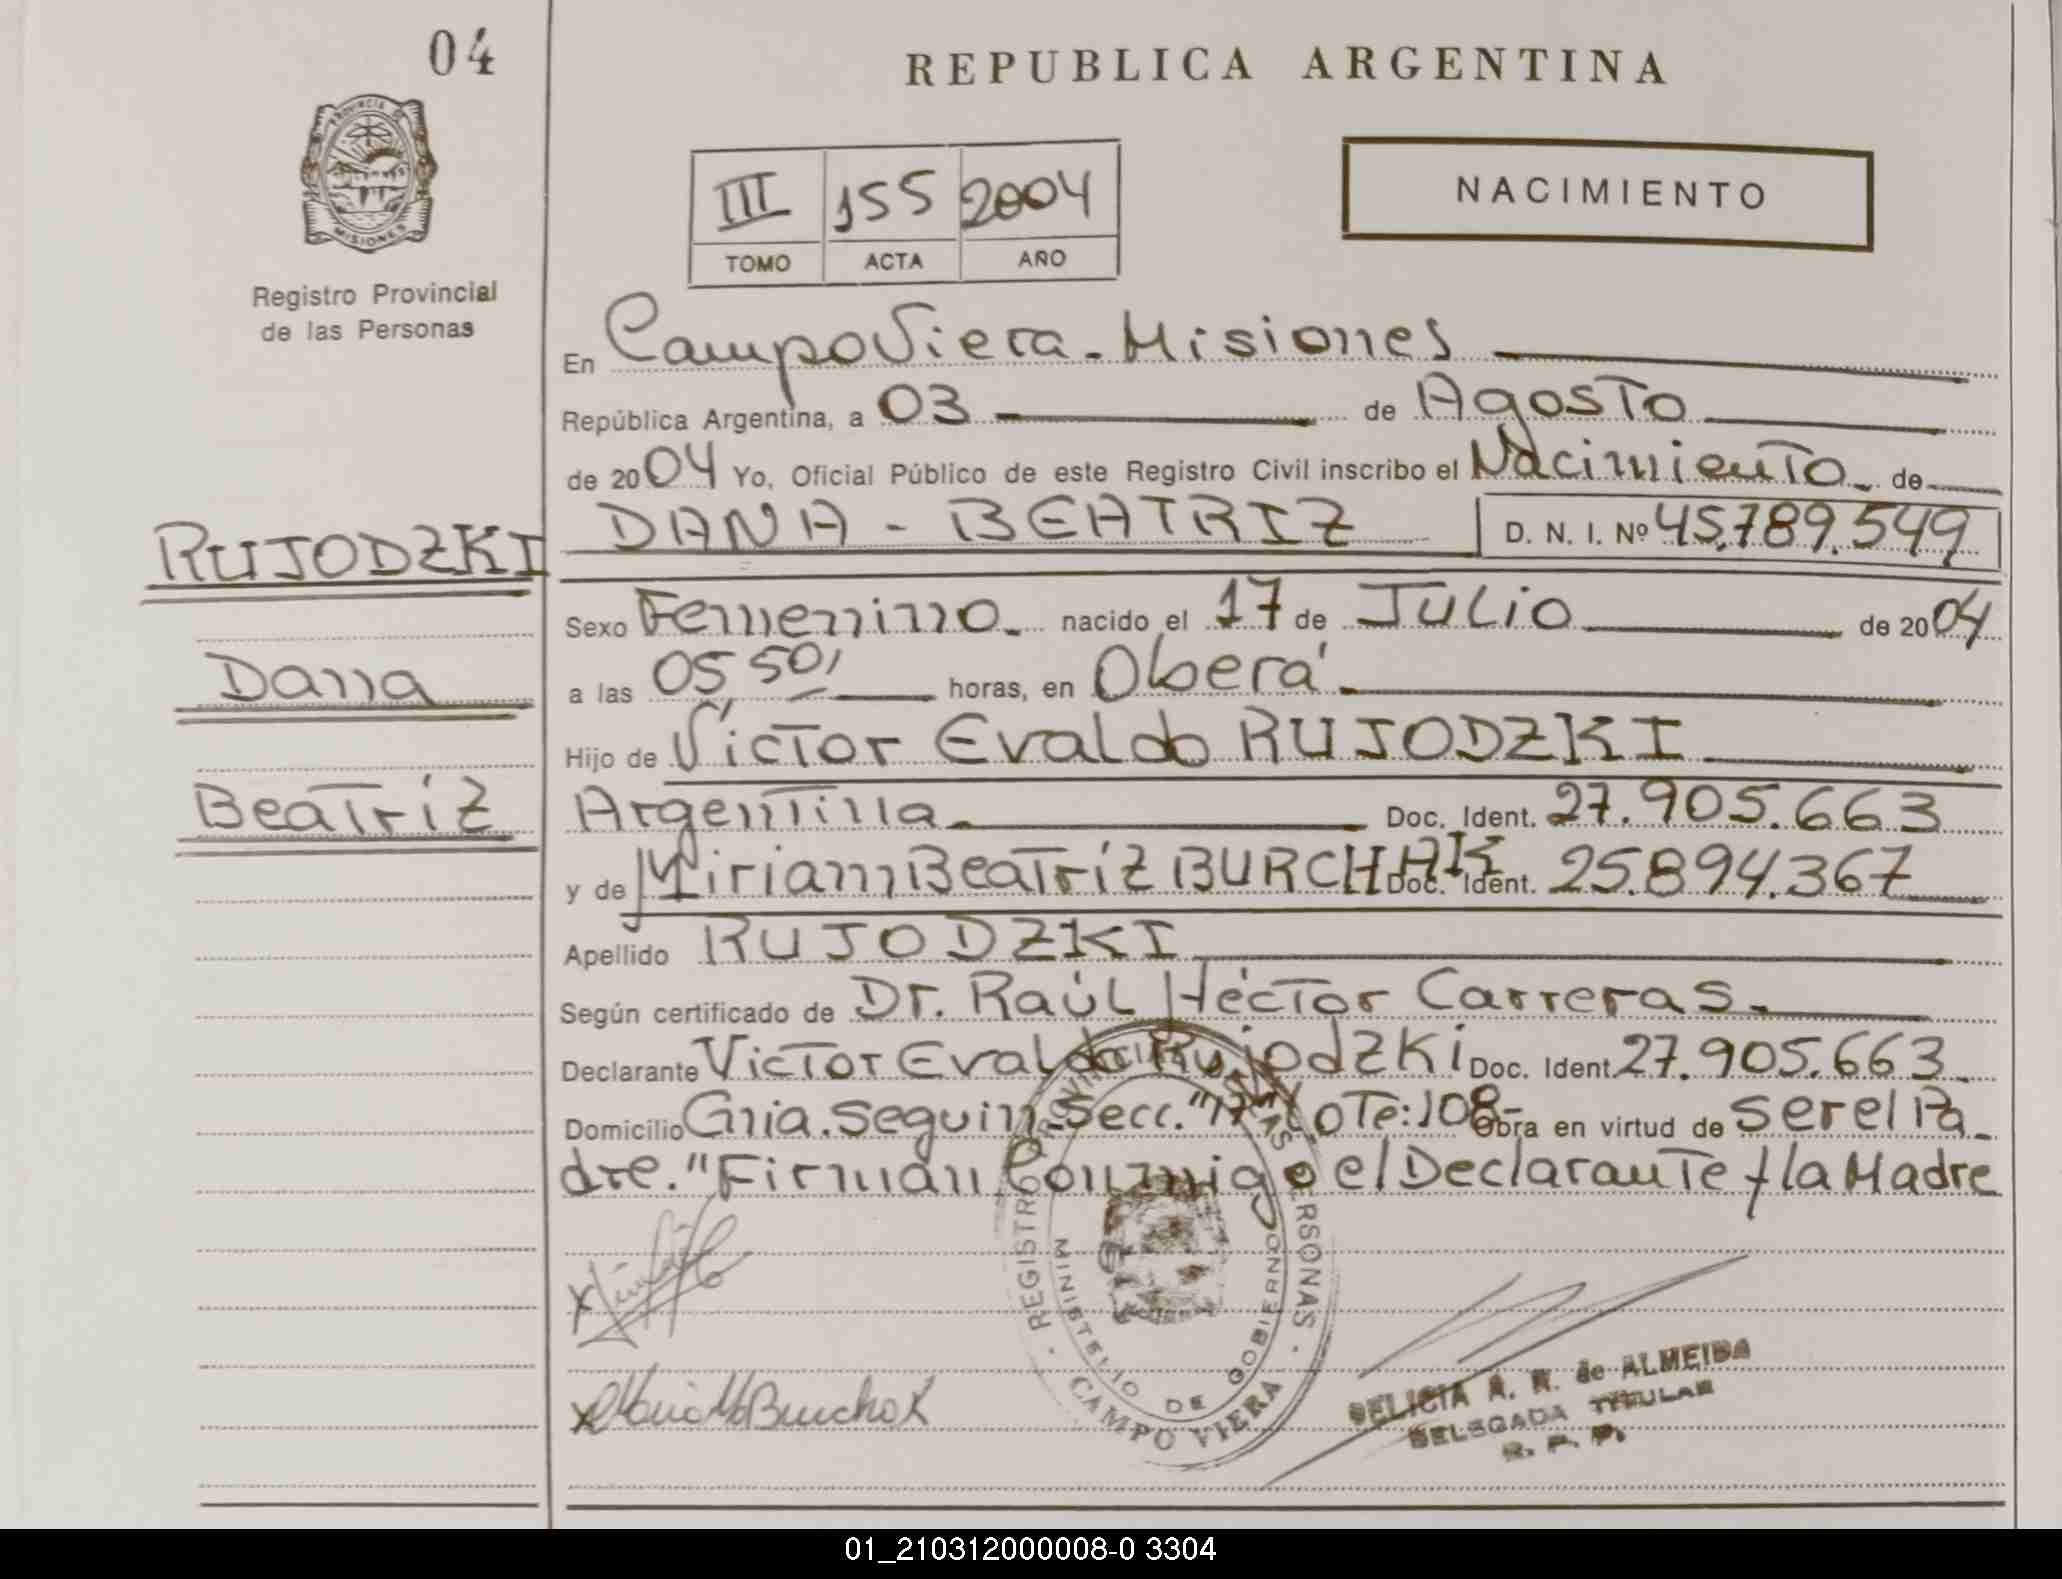 04
REPUBLICA ARGENTINA
PROVINCIA DE
MISIONES
Registro Provincial
de las Personas
III 155 2004
TOMO ACTA AÑO
NACIMIENTO
En Campo Viera - Misiones
República Argentina, a 03 de Agosto
de 2004 Yo, Oficial Público de este Registro Civil inscribo el Nacimiento de
RUJODZKI
DANA - BEATRIZ D. N. I. Nº 45.789.549
Sexo Femenino. nacido el 17 de Julio de 2004
Dana
a las 05,50, horas, en Oberá
Hijo de Víctor Evaldo RUJODZKI
Beatríz
Argentina Doc. Ident. 27.905.663
y de Miriam Beatríz BURCHAK Doc. Ident. 25.894.367
Apellido RUJODZKI
Según certificado de Dr. Raúl Héctor Carreras.
Declarante Victor Evaldo Rujodzki Doc. Ident. 27.905.663
Domicilio Cnia. Seguin - Secc. "17" Lote: 108- Obra en virtud de ser el Pa
dre. "Firman Conmigo el Declarante y la Madre
REGISTRO PROVINCIAL DE LAS PERSONAS
MINISTERIO DE GOBIERNO
CAMPO VIERA
DELICIA A. R. de ALMEIDA
DELEGADA TITULAR
R. P. P.
01_210312000008-0 3304